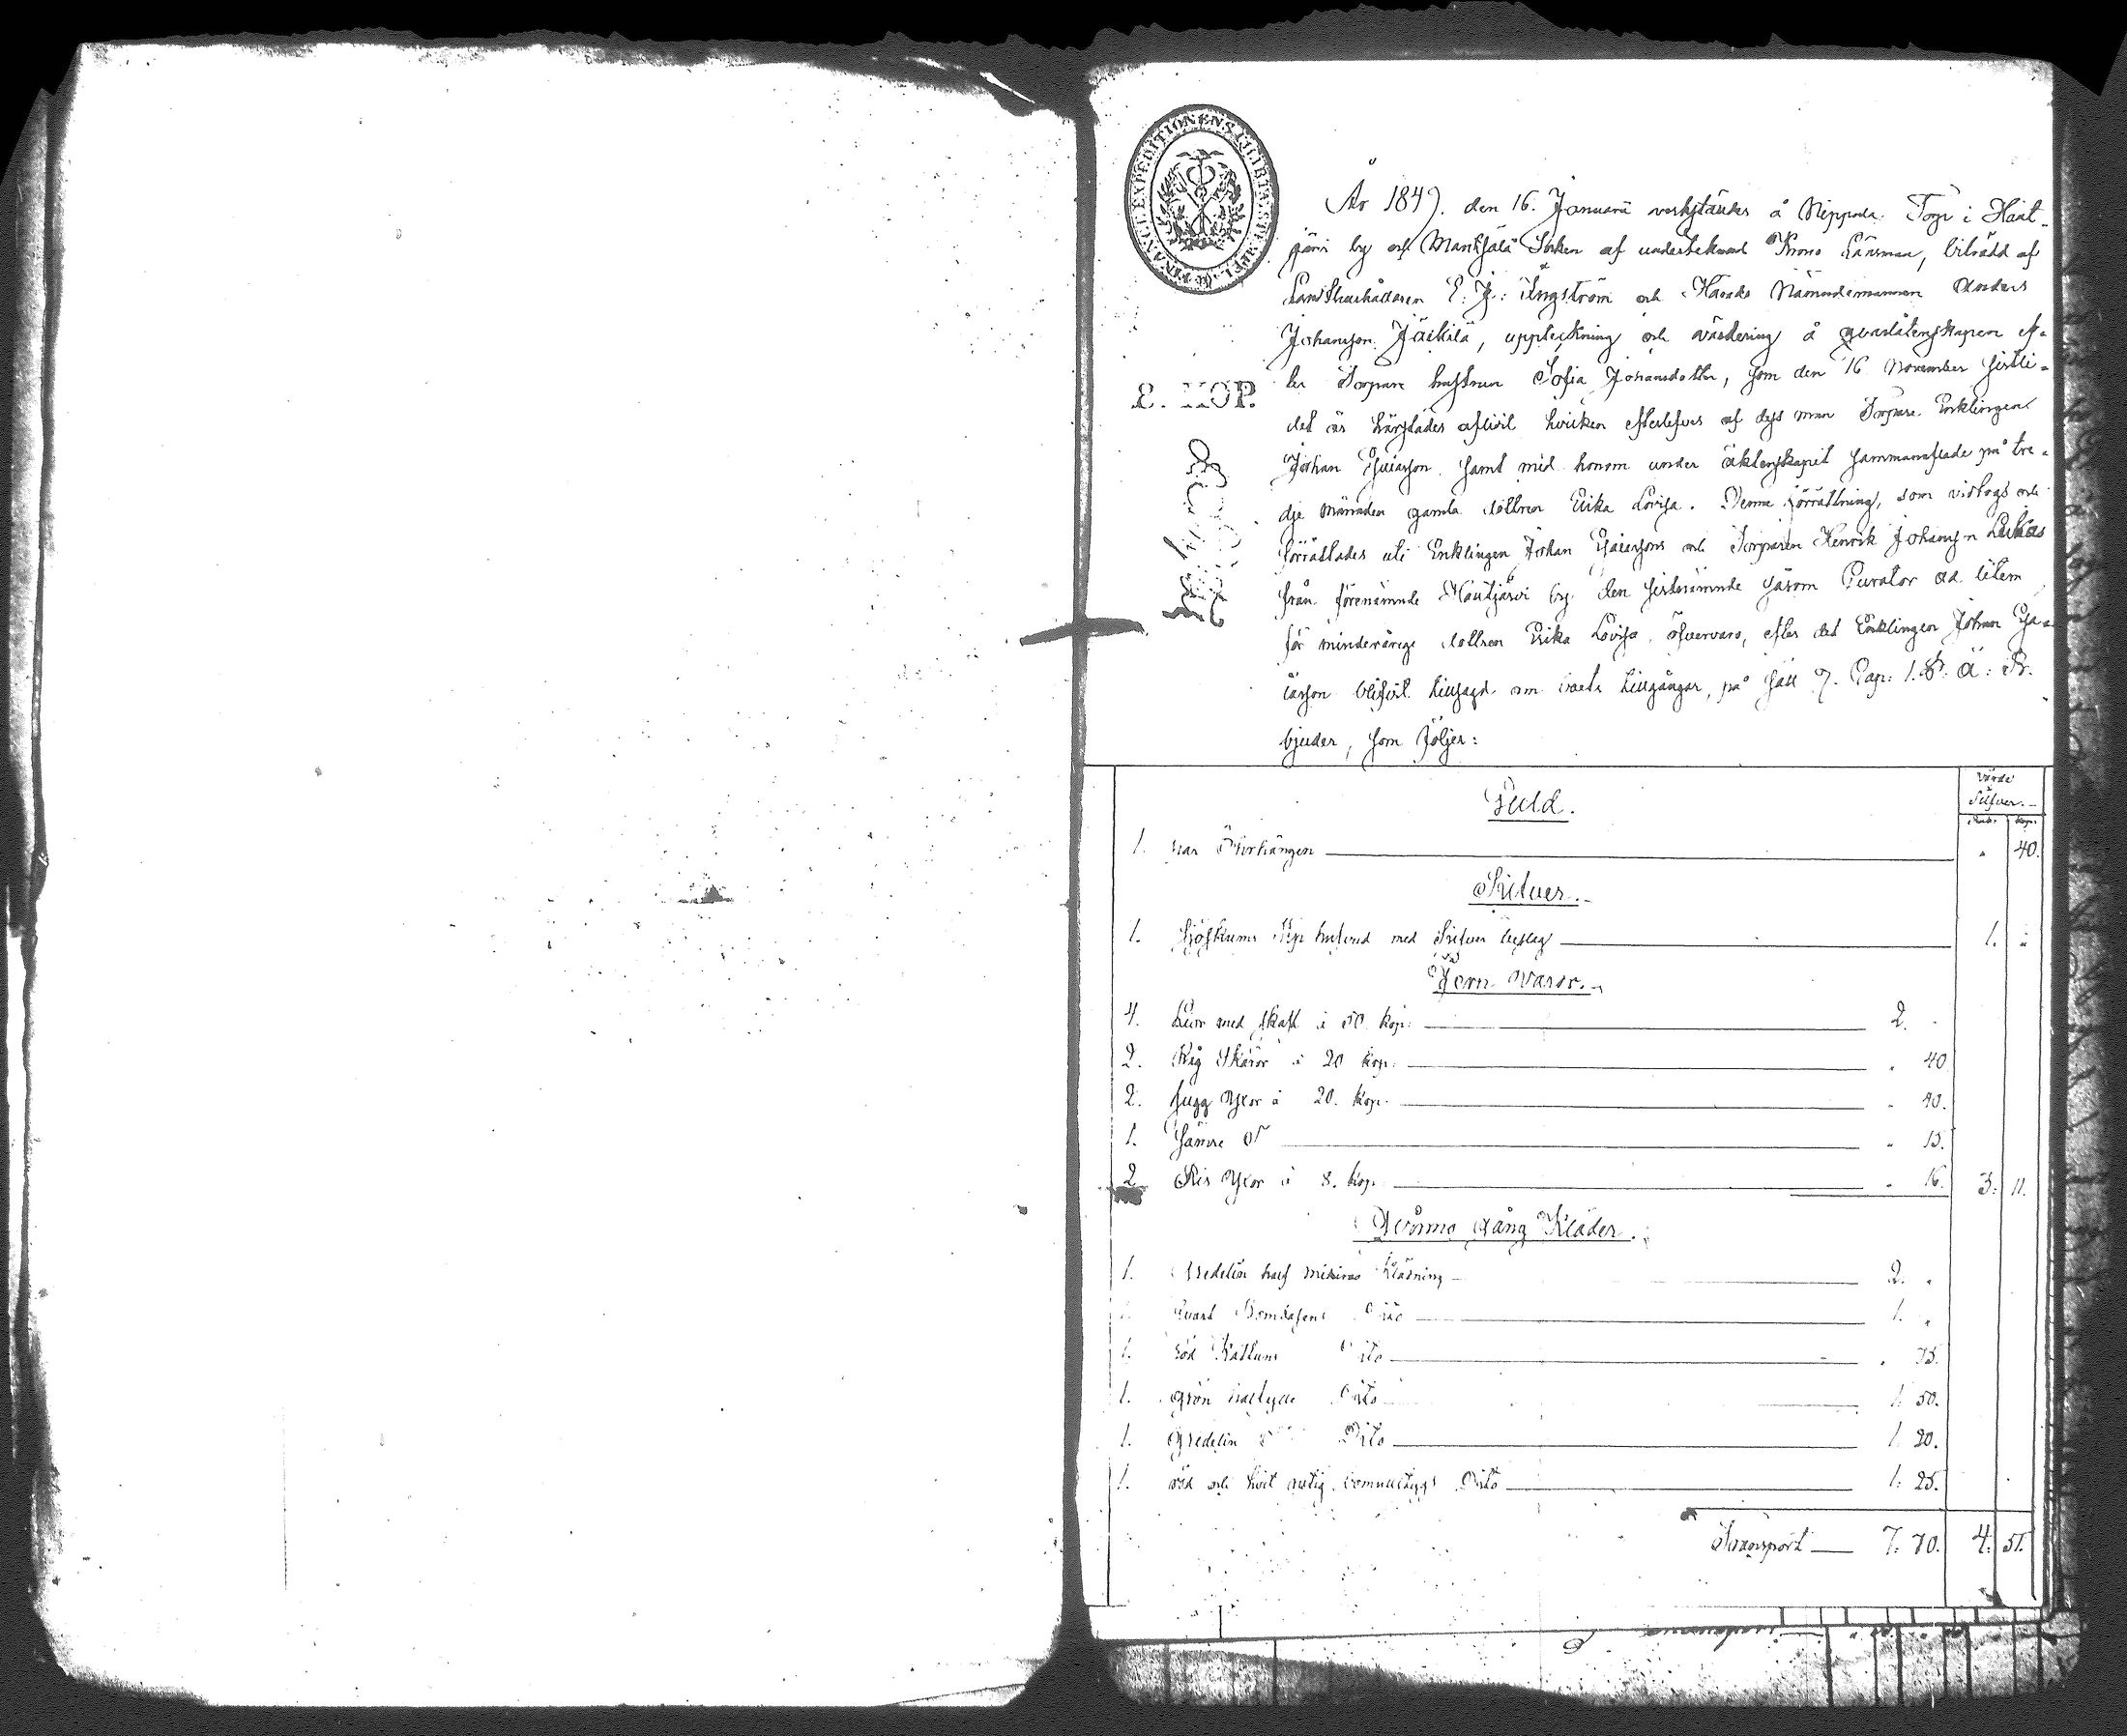 FINANCE EXPEDITIONENS
År 1849. den 16. Januarii verkstäldes å Nippula Torp i Haut-
järvi by och Mäntsälä Socken af undertecknad Krono Länsman, biträdd af
Landtbrukaren E: J: Ångström och Härads Nämndemannen Anders
Johansson Jäckilä, uppteckning och värdering å qvarlåtenskapen ef-
ter Torpare hustrun Sofia Johansdotter, som den 16 November sistli-
8. KOP.
det år härstädes aflidit hvilken efterlefves af dess man Torpare Enklingen
Johan Esaiasson samt med honom under äktenskapet sammanaflade på tre-
dje månaden gamla dottren Erika Lovisa. Denna förrättning, som vidtogs och
förrättades uti Enklingen Johan Esaiassons och Torparen Henrik Johansson
från förenämnde Hautjärvi by den sistnämnde såsom Curator ad litem
för minderåriga dottren Erika Lovisa öfvervaro, efter det Enklingen Johan Esa-
iasson blifvit tillsagd om boets tillgångar, på sätt 9. Cap: 1. §. Ä: B.
bjuder, som följer:
Värde
Silfver.
Guld.
Rub. Kop.
1. par Örhängen " 40.
Silfver.
1. Sjöskums Pip hufvud med Silfver beslag 1. "
Jern Varor.
4. Liar med skaft à 50 kop. 2. "
2. Råg Skäror à 20 kop. " 40
2. hugg Yxor à 20. kop. " 40.
1. " 15.
2. Yxor à 8. kop. " 16. 3. 11.
Qvinno Gång Kläder.
1. Gredelin half merinos Klädning 2. "
1. Svart Bombasens Dito 1. "
1. röd Kattuns Dito " 75.
1. grön halfylle Dito 1. 50.
1. Gredelin Dito 1. 20.
1. röd och hvit rutig bomullstygs Dito 1. 25.
Transport 7. 70. 4. 51.